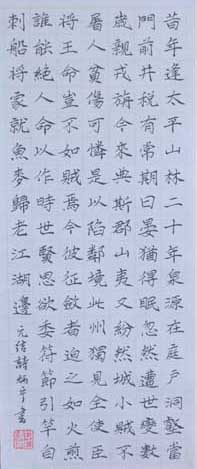 昔年逢太平山林二十年泉源在庭戶洞壑當
門前井稅有常期日晏猶得眠忽然遭世變數
歲親戎旃今來典斯郡山夷又紛然城小賊不
屠人貧傷可憐是以陷鄰境此州獨見全使臣
將王命豈不如賊焉今彼征斂者迫之如火煎
誰能絕人命以作時世賢思欲委符節引竿自
刺船將家就魚麥歸老江湖邊
元結詩 書